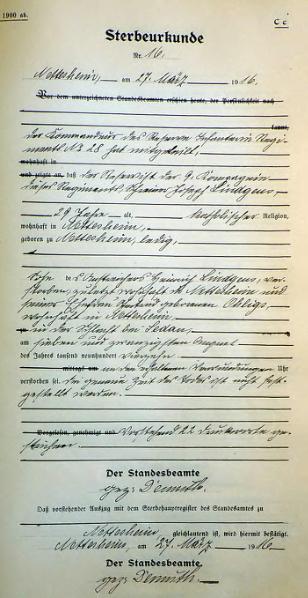 1900 ab.
C c
Sterbeurkunde
Nr. 16.
Nettersheim, am 27. März 1916.
Vor dem unterzeichneten Standesbeamten erschien heute, der Persönlichkeit nach
kannt,
Der Kommandeur des Reserve Infanterie Regi-
ments N. 28 hat mitgeteilt,
wohnhaft in
und zeigte an, daß der Reservist der 9. Kompagnie
dieses Regiments, Joseph
29 Jahre alt, katholischer Religion,
wohnhaft in Nettersheim,
geboren zu Nettersheim, ledig,
Sohn des Heinrich ver-
storben, zuletzt wohnhaft in Nettersheim und
seiner Ehefrau geborenen
wohnhaft in Nettersheim
in der Schlacht bei Sedan,
am sieben und zwanzigsten August
des Jahres tausend neunhundert vierzehn
mittags um an den erlittenen Verwundungen Uhr
verstorben sei. Die genaue Zeit des Todes ist nicht fest-
gestellt worden.
Vorgelesen, genehmigt und Vorstehend 22 Druckworte ge-
strichen.
Der Standesbeamte
gez: Demuth.
Daß vorstehender Auszug mit dem Sterbehauptregister des Standesamts zu
Nettersheim gleichlautend ist, wird hiermit bestätigt.
Nettersheim, am 27. März 1916.
Der Standesbeamte
gez: Demuth.